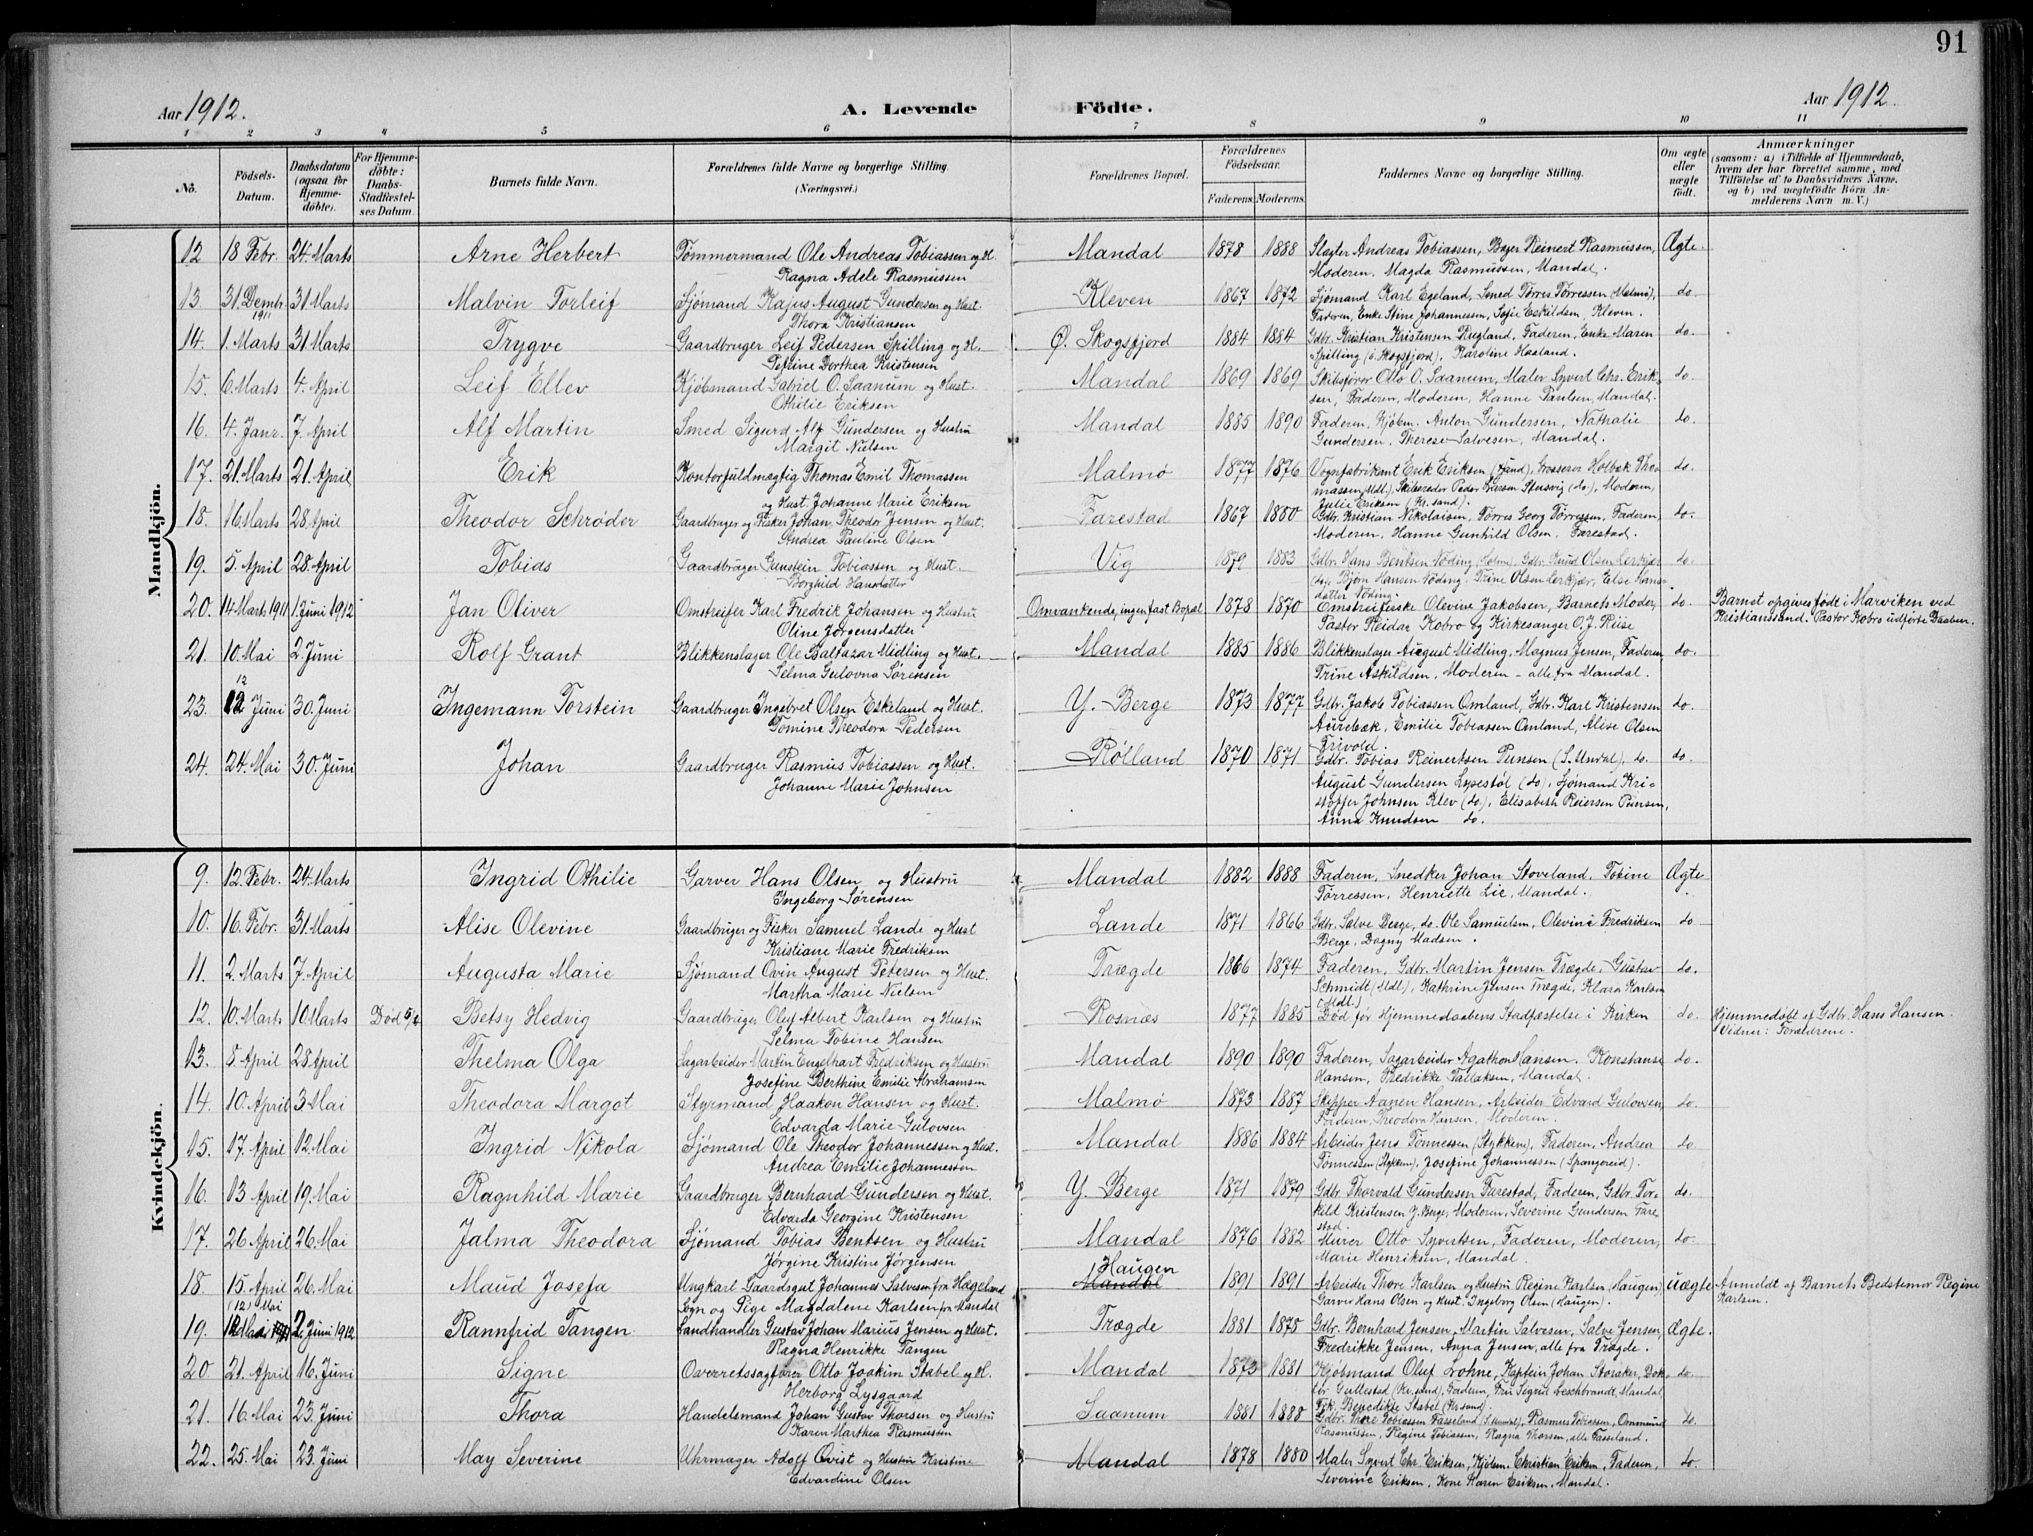 91
Aar 1912.
A. Levende Födte.
Aar 1912.
1 2 3 4 5 6 7 8 9 10 11
No.
Födsels-Datum.
Daabsdatum (ogsaa for Hjemme-döbte).
For Hjemme-döbte: Daabs-Stadfæstel-ses Datum.
Barnets fulde Navn.
Forældrenes fulde Navne og borgerlige Stilling. (Næringsvei.)
Forældrenes Bopæl.
Forældrenes Födselsaar. Faderens. Moderens.
Faddernes Navne og borgerlige Stilling.
Om ægte eller uægte födt.
Anmærkninger (saasom: a) i Tilfælde af Hjemmedaab, hvem der har forrettet samme, med Tilföielse af to Daabsvidners Navne, og b) ved uægtefödte Börn An-melderens Navn m. V.)
Mandkjön.
12 18 Febr. 24. Marts Arne Herbert Tømmermand Ole Andreas Tobiassen og H. Mandal 1878 1888 Slagter Andreas Tobiassen, Bager Reinert Rasmussen, Ægte
Ragna Adele Rasmussen Moderen, Magda Rasmussen, Mandal.
13. 31 Dembr. 31 Marts Malvin Torleif Sjømand Kajus August Gundersen og Hust. Kleven 1867 1872 Sjømand Karl Egeland, Smed Tørres Tørressen (Malmø), do.
1911 Thora Kristiansen Faderen, Enke Stine Johannessen, Sofie Eskildsen, Kleven.
14. 1. Marts 31 Marts Trygve Gaardbruger Leif Pedersen Spilling og H. Ø. Skogsfjord 1884 1884 Gdbr. Kristian Kristensen Rugland, Faderen, Enke Maren do.
Petrine Dorthea Kristensen Spilling (ö. Skogsfjord), Karoline Haaland.
15. 6. Marts 4. April Leif Ellev Kjøbmand Gabriel O. Saanum og Hust. Mandal 1869 1869 Skibsfører Otto O. Saanum, Maler Syvert Chr. Erik- do.
Othilie Eriksen sen, Faderen, Moderen, Hanne Paulsen, Mandal.
16. 4. Janr. 7. April Alf Martin Smed Sigurd Alf Gundersen og Hustru Mandal 1885 1890 Faderen, Kjøbm. Anton Gundersen, Nathalie do.
Margit Nielsen Gundersen, Therese Salvesen, Mandal.
17. 21 Marts 21. April Erik Kontorfuldmægtig Thomas Emil Thomassen Malmø 1877 1876 Vognfabrikant Erik Eriksen, Grosserer Holbæk Tho- do.
og Hust. Johanne Marie Eriksen massen (Mdl.), Skibsreder Peder Stusvig (do), Moderen, Julie Eriksen (Kr.sand).
18. 16 Marts 28. April Theodor Schrøder Gaardbruger og Fisker Johan Theodor Jensen og Hust. Farestad 1867 1880 Gdbr. Kristian Nikolaisen, Tørres Georg Tørressen, Faderen, do.
Andrea Pauline Olsen Moderen, Hanne Gunhild Olsen, Farestad.
19. 5. April 28. April Tobias Gaardbruger Gunstein Tobiassen og Hust. Vig 1879 1883 Gdbr. Hans Bentsen Nöding (Holme), Gdbr. Knud Olsen Lerkjær do.
Borghild Hansdatter (do), Björn Hansen Nöding, Trine Olsen Lerkjær, Else Hans-datter Nöding.
20. 14 Marts 1911 1. Juni 1912 Jan Oliver Omstreifer Karl Fredrik Johansen og Hustru Omvankende, ingen fast Bopæl 1878 1870 Omstreiferske Olevine Jakobsen, Barnets Moder, do. Barnet opgives født i Marviken ved
Oline Jørgensdatter Pastor Reidar Kobro og Kirkesanger O. J. Riise Kristianssand. Pastor Kobro udførte Daaben.
21. 10. Mai 2. Juni Rolf Grant Blikkenslager Ole Baltazar Midling og Hust. Mandal 1885 1886 Blikkenslager August Midling, Magnus Jensen, Faderen do.
Selma Gulovna Sørensen Trine Askildsen, Moderen - alle fra Mandal.
12
23. 12 Juni 30. Juni Ingemann Torstein Gaardbruger Ingebret Olsen Eskeland og Hust. Y. Berge 1873 1877 Gdbr. Jakob Tobiassen Omland, Gdbr. Karl Kristensen do.
Tomine Theodora Pedersen Aurebæk, Emilie Tobiassen Omland, Alise Olsen Frivold.
24. 24. Mai 30. Juni Johan Gaardbruger Rasmus Tobiassen og Hust. Rølland 1870 1871 Gdbr. Tobias Reinertsen Punsen (S. Undal), do. do.
Johanne Marie Johnsen August Gundersen Lypestøl (do), Sjømand Kri-
stoffer Johnsen Klev (do.), Elisabeth Reiersen Punsen,
Anna Knudsen do.
Kvindekjön.
9. 12. Febr. 24. Marts Ingrid Othilie Garver Hans Olsen og Hustru Mandal 1882 1888 Faderen, Snedker Johan Stoveland, Tobine Ægte
Ingeborg Sørensen Tørressen, Henriette Lie, Mandal.
10. 16. Febr. 31 Marts Alise Olevine Gaardbruger og Fisker Samuel Lande og Hust Lande 1871 1866 Gdbr. Salve Berge, do. Ole Samuelsen, Olevine Fredriksen do
Kristiane Marie Fredriksen Berge, Dagny Madsen.
11. 2. Marts 7. April Augusta Marie Sjømand Ovin August Petersen og Hust. Trægde 1866 1874 Faderen, Gdbr. Martin Jensen Trægde, Gustav do.
Martha Marie Nielsen Schmidt (Mdl.), Kathrine Jensen Trægde, Klara Karlsen (Mdl.)
12. 10. Marts 10 Marts Død 5/4 Betsy Hedvig Gaardbruger Oluf Albert Karlsen og Hustru Rosnæs 1877 1885 Død før Hjemmedaabens Stadfæstelse i Kirken do. Hjemmedøbt af Gdbr. Hans Hansen.
Selma Tobine Hansen Vidner: Forældrene.
13. 8 April 28. April Thelma Olga Sagarbeider Martin Engelhart Fredriksen og Hustru Mandal 1890 1890 Faderen, Sagarbeider Agathon Hansen, Konstanse do.
Josefine Berthine Emilie Abrahamsen Hansen, Fredrikke Tallaksen, Mandal.
14. 10. April 3. Mai Theodora Margot Styrmand Haakon Hansen og Hust. Malmø 1873 1887 Skipper Aanen Hansen, Arbeider Edvard Gulovsen, do.
Edvarda Marie Gulovsen Faderen, Theodora Hansen, Moderen.
15. 17. April 12. Mai Ingrid Nikola Sjømand Ole Theodor Johannessen og Hust. Mandal 1886 1884 Arbeider Jens Tønnessen (Stykken), Faderen, Andrea do
Andrea Emilie Johannessen Tønnessen (Stykken), Josefine Johannessen (Spangereid).
16. 13 April 19. Mai Ragnhild Marie Gaardbruger Bernhard Gundersen og Hust. Y. Berge 1871 1879 Gdbr. Thorvald Gundersen Farestad, Faderen, Gdbr. Tor- do.
Edvarda Georgine Kristensen kild Kristensen Y. Berge, Moderen, Severine Gundersen Fare-stad.
17. 26 April 26. Mai Jalma Theodora Sjømand Tobias Bentsen og Hustru Mandal 1876 1882 Murer Otto Syvertsen, Faderen, Moderen, do.
Jørgine Kristine Jørgensen Marie Henriksen, Mandal.
Haugen
18. 15. April 26. Mai Maud Josefa Ungkarl Gaardsgut Johannes Salvesen fra Hægeland Mandal 1891 1891 Arbeider Thore Karlsen og Hustru Regine Karlsen, (Haugen) Uægte Anmeldt af Barnets Bedstemor Regine
Syn og Pige Magdalene Karlsen fra Mandal Garver Hans Olsen og Hust. Ingeborg Olsen (Haugen). Karlsen.
(12) Mai
19. 12 Mai 2. Juni 1912 Rannfrid Tangen Landhandler Gustav Johan Marius Jensen og Hust. Trægde 1881 1878 Gdbr. Bernhard Jensen, Martin Salvesen, Salve Jensen, Ægte.
Ragna Henrikke Tangen Fredrikke Jensen, Anna Jensen, alle fra Trægde.
20 21. April 16. Juni Signe Overretssagfører Otto Joakim Stabel og H. Mandal 1873 1881 Kjøbmand Oluf Lohne, Kaptein Johan Storaker, Dok- do.
Herborg Lysgaard tor Gullestad (Kr.sand), Faderen, Fru Sigrid Leschbrandt, Mandal
Frk. Benedikte Stabel (Kr.sand).
21. 16. Mai 23. Juni Thora Handelsmand Johan Gustav Thorsen og Hustru Saanum 1881 1888 Gdbr. Thore Tobiassen Fasseland, Rasmus Tobiassen, Ommund do.
Karen Marthea Rasmussen Rasmussen, Regine Tobiassen, Ragna Thorsen, alle Fasseland.
22. 25. Mai 23. Juni May Severine Uhrmager Adolf Qvist og Hustru Kristine Mandal 1878 1880 Maler Syvert Chr. Eriksen, Kjøbm. Christian Eriksen, Faderen, do.
Edvardine Olsen Severine Eriksen, Kone Karen Eriksen, Mandal.